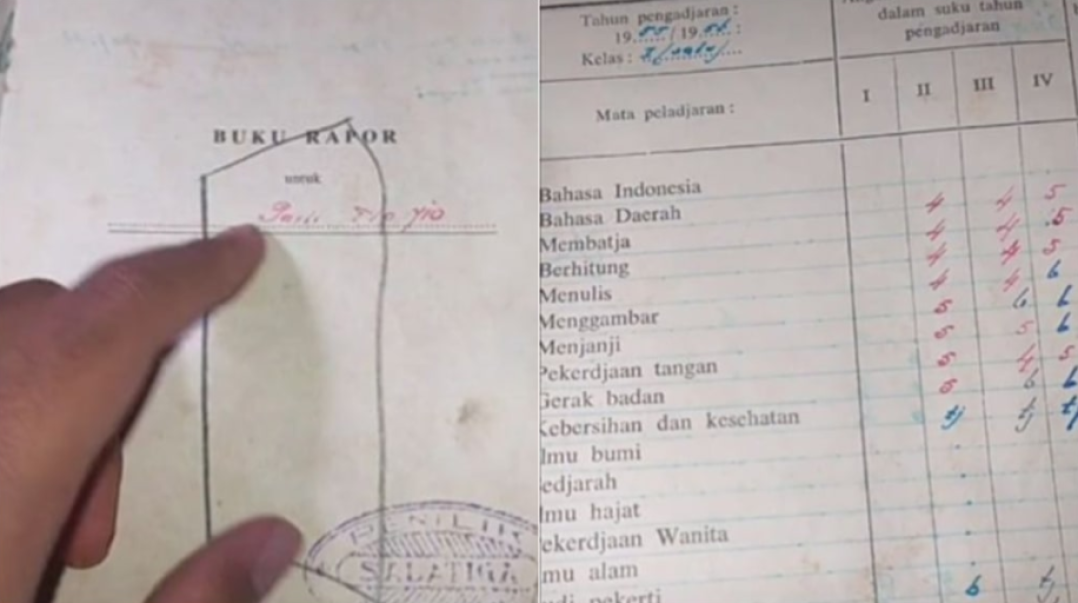 BUKU RAPOR
untuk
PENILIK
SALATIGA
Tahun pengadjaran :
19.55./19.56. :
Kelas :
dalam suku tahun
pengadjaran
Mata peladjaran :
I II III IV
Bahasa Indonesia 4 4 5
Bahasa Daerah 4 4 5
Membatja 4 4 5
Berhitung 4 4 6
Menulis 5 6 6
Menggambar 5 5 6
Menjanji 5 4 5
Pekerdjaan tangan 5 6 6
Gerak badan
Kebersihan dan kesehatan
lmu bumi
edjarah
lmu hajat
ekerdjaan Wanita
mu alam
di pekerti 6